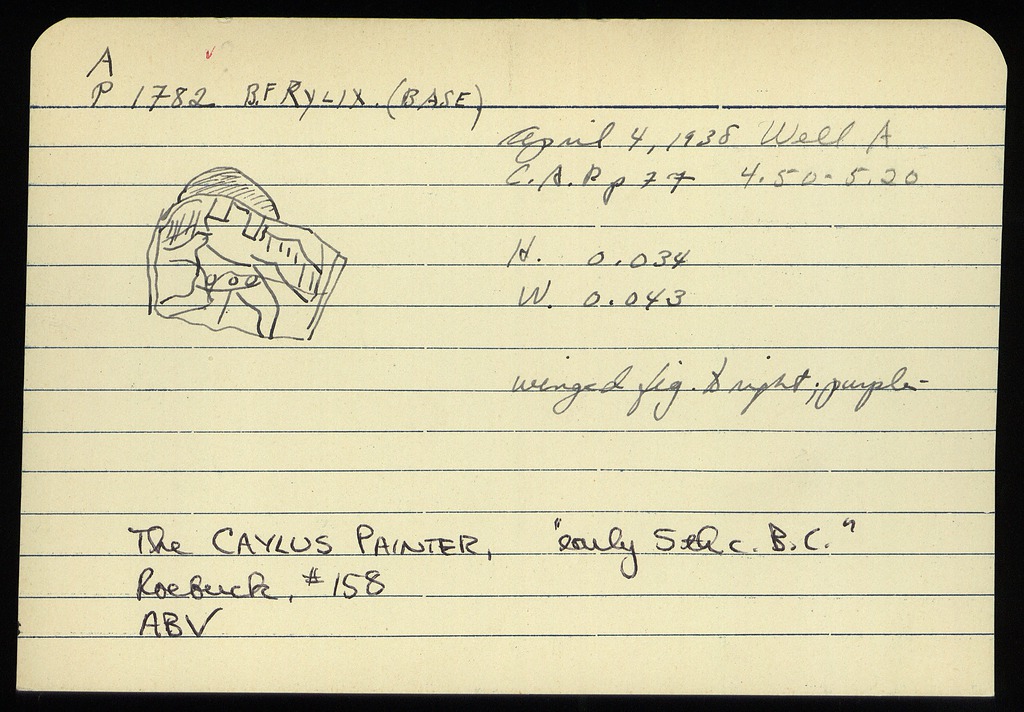 A
P 1782 B.F KYLIX. (BASE)
April 4, 1938 Well A
C.A.R p 77 4.50-5.20
H. 0.034
W. 0.043
winged fig. to right; purple-
The CAYLUS PAINTER, "early 5th c. B.C."
Roebuck, #158
ABV